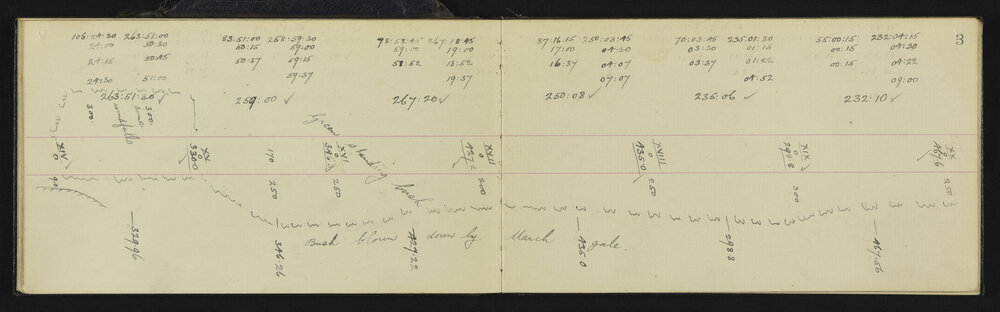 3
106:24:30 263:51:00 83:51:00 258:59:30 98:58:45 267:18:45 87:16:15 250:03:45 70:03:45 235:01:30 55:00:15 232:04:15
24:00 50:30 50:15 59:00 59:00 19:00 17:00 04:30 03:30 01:15 00:15 04:30
24:15 50:45 50:37 59:15 58:52 18:52 16:37 04:07 03:37 01:22 00:15 04:22
24:30 51:00 59:37 19:37 07:07 04:52 09:00
263:51:30 259:00 267:20 250:08 235:06 232:10
300
300
some
windfalls
Green standing bush
XIV
0
XV
0
3300
170
250
XVI
0
250
XVII
0
200
XVIII
0
4350
250
XIX
0
2988
200
XX
0
4676
250
90
329.96
346.26
Bush blown down by March gale.
427.22
435.0
298.8
467.56